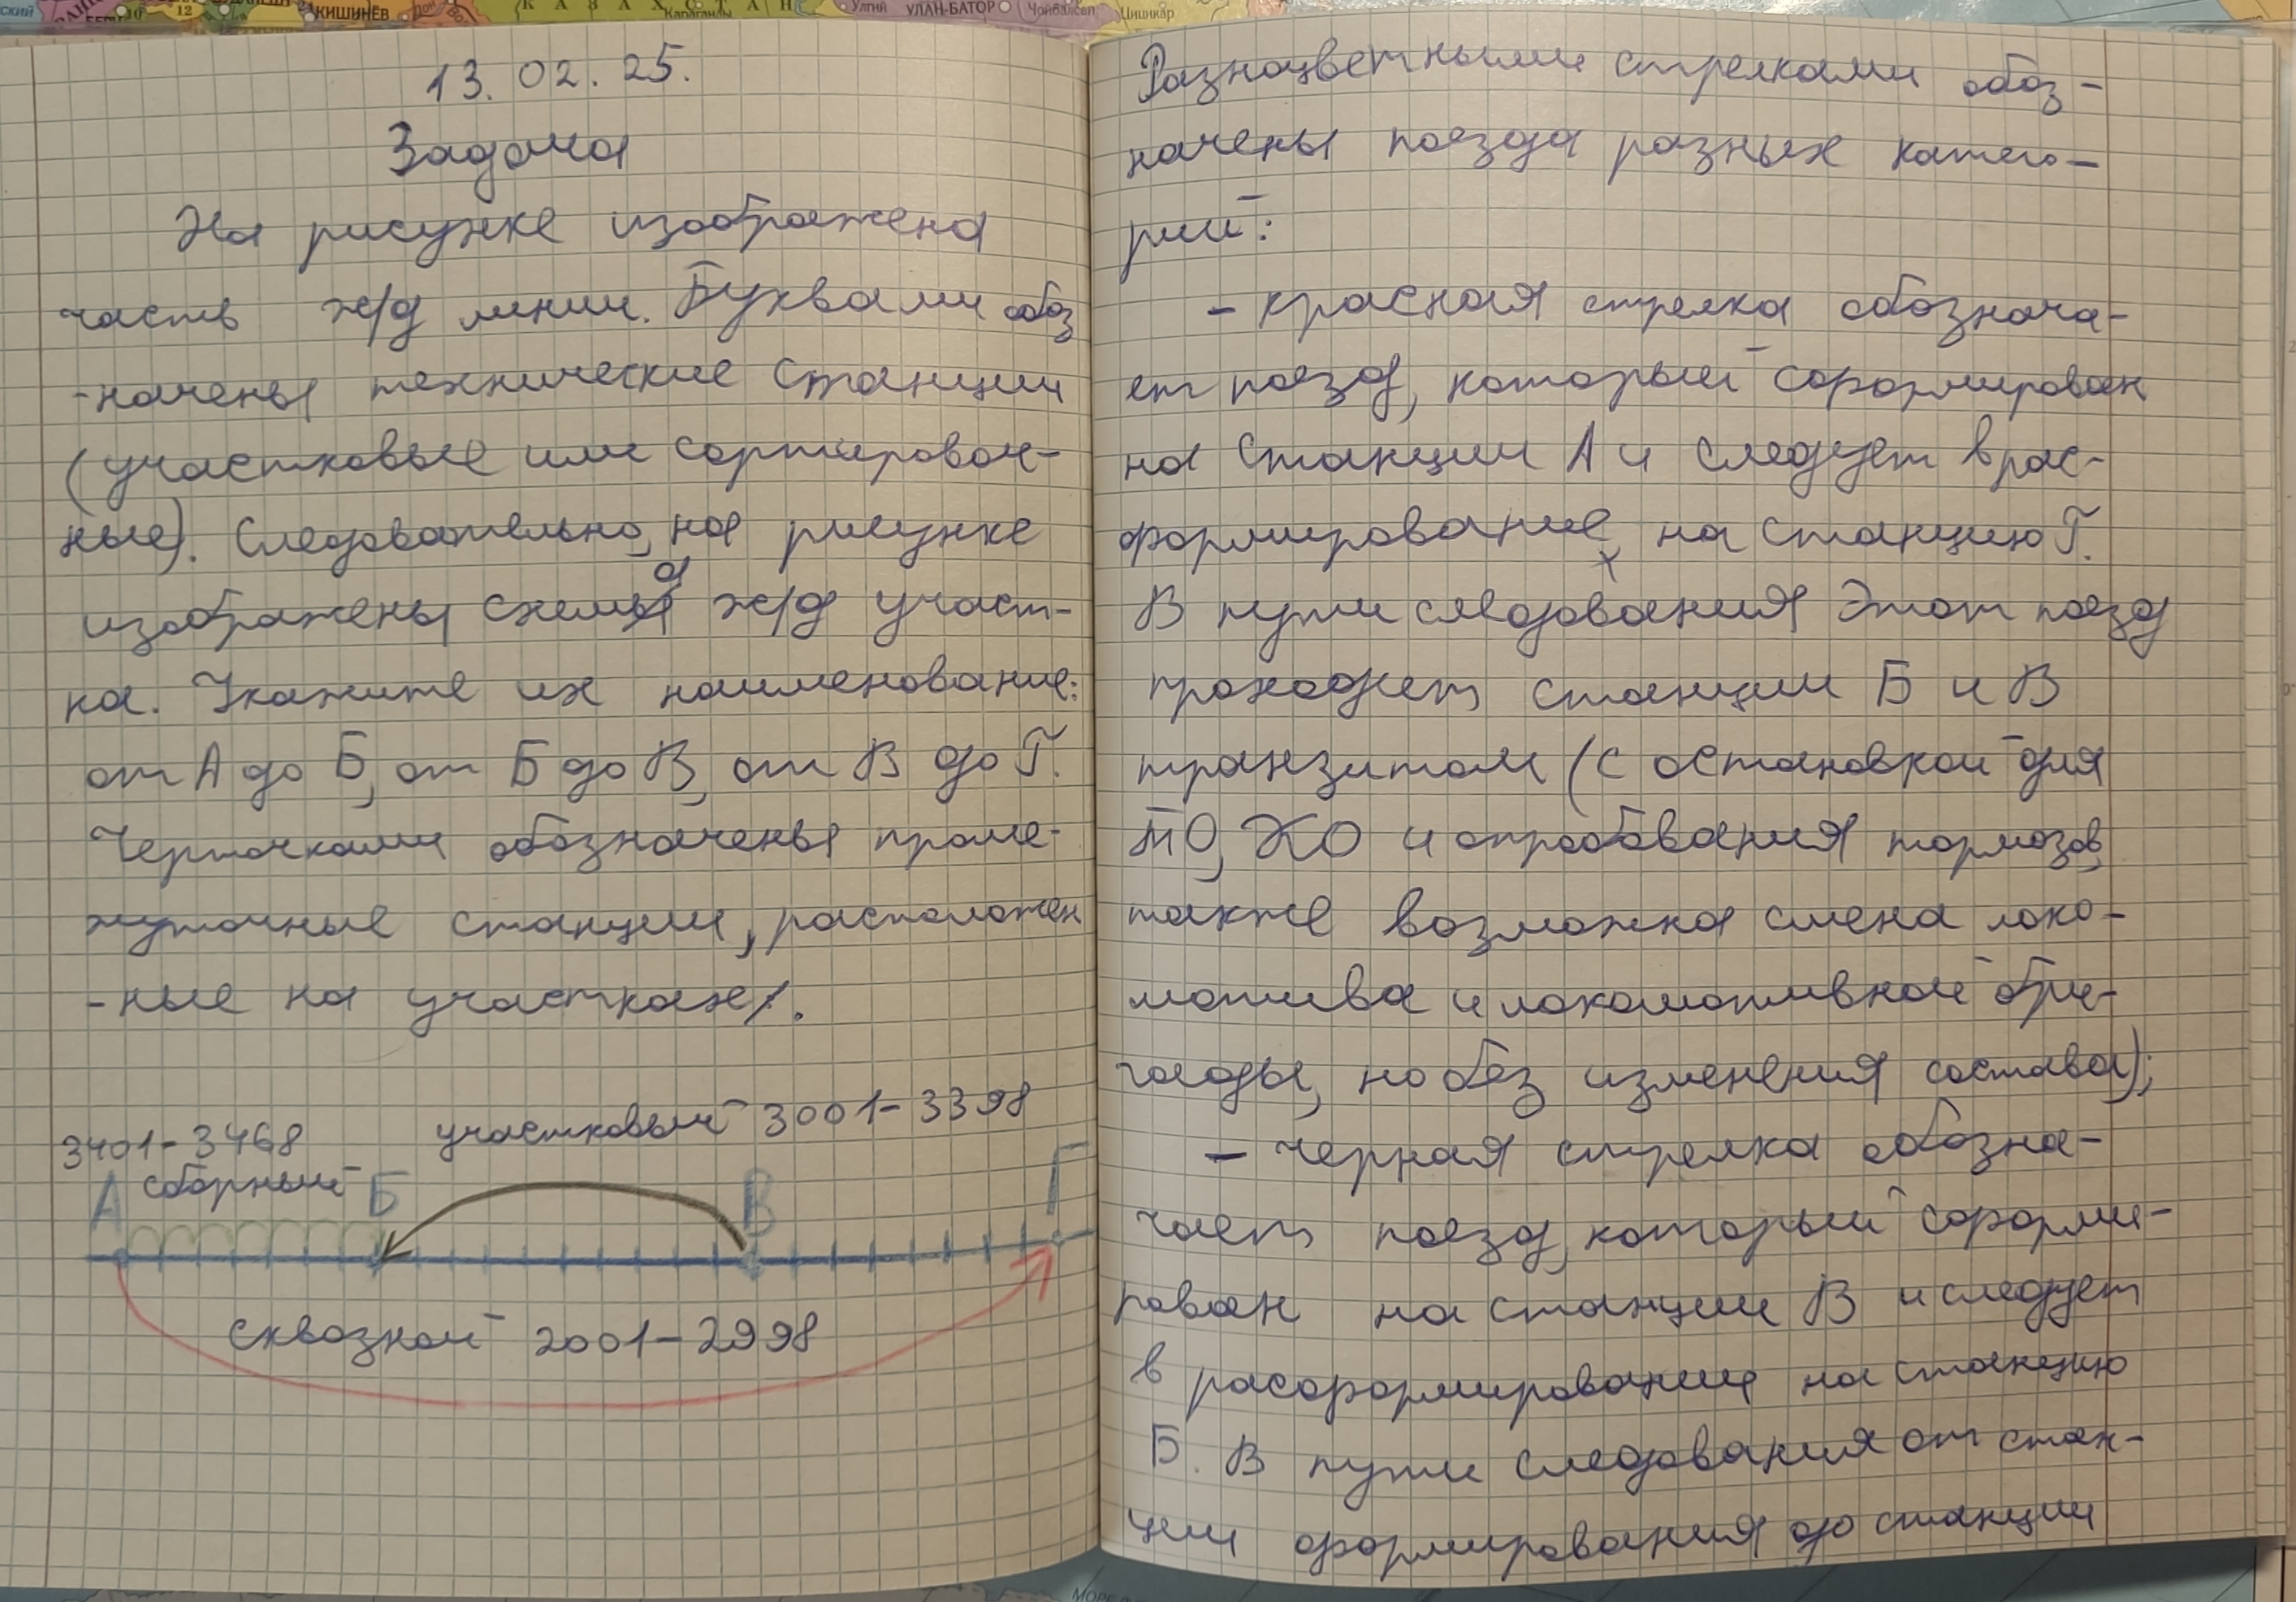 КИШИНЁВ
КАЗАХСТАН
Караганды
Улгий
УЛАН-БАТОР
Чойбалсан
Цицикар
13. 02. 25.
Задача
На рисунке изображена
часть ж/д линии. Буквами обоз
-начены технические станции
(участковые или сортировоч-
ные). Следовательно, на рисунке
изображены схема ж/д участ-
ка. Укажите их наименование:
от А до Б, от Б до В, от В до Г.
Черточками обозначены проме-
жуточные станции, расположен
-ные на участках.
участковый 3001-3398
3401-3468
сборный
А Б В Г
сквозной 2001-2998
Разноцветными стрелками обоз-
начены поезда разных катего-
рий:
- красная стрелка обознача-
ет поезд, который сформирован
на станции А и следует в рас-
формирование на станцию Г.
В пути следования этот поезд
проходит станции Б и В
транзитом (с остановкой для
ТО, КО и опробования тормозов,
также возможна смена локо-
мотива и локомотивной бри-
гады, но без изменения состава);
- черная стрелка обозна-
чает поезд, который сформи-
рован на станции В и следует
в расформирование на станцию
Б. В пути следования от стан-
ции формирования до станции